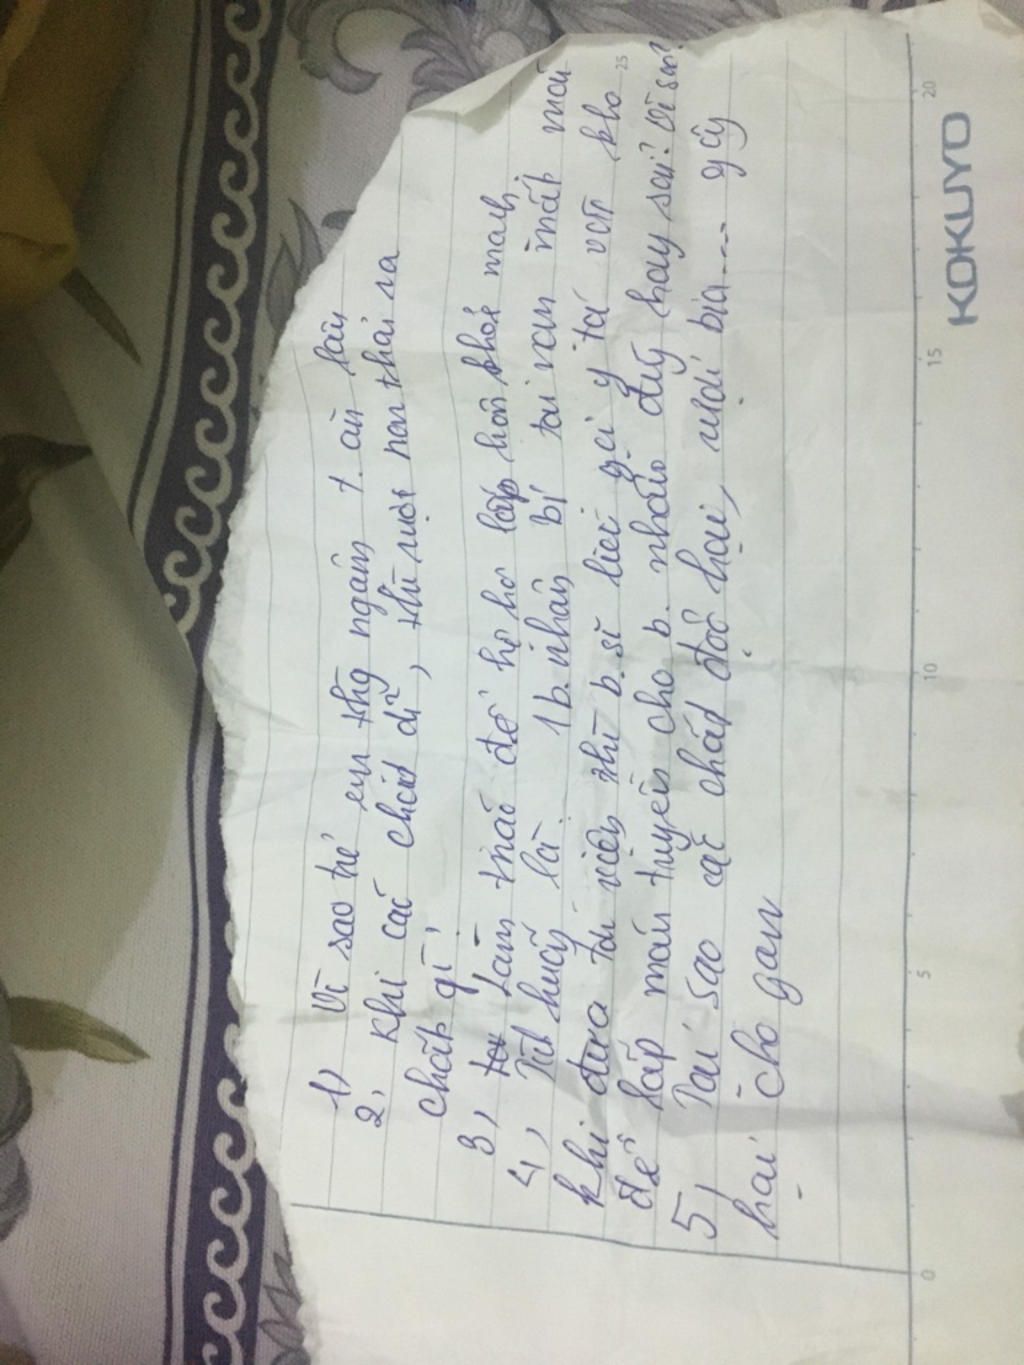 1) Vì sao trẻ em thg ngậm t. ăn lâu
2, Khi các chất dd, thì ruột non thải ra
chất gì,
3, Làm thế nào để hệ hô hấp hđ khoẻ mạnh,
4, Tình huống là: 1 b. nhân bị tai nạn mất máu
khi đưa tới viện thì b. sĩ liền gọi y tá vào kho
để lấp máu truyền cho b. nhân đúng hay sai? Vì sao?
5, Tại sao các chất độc hại, rượu bia... gây
hại cho gan
KOKUYO
0 5 10 15 20
25